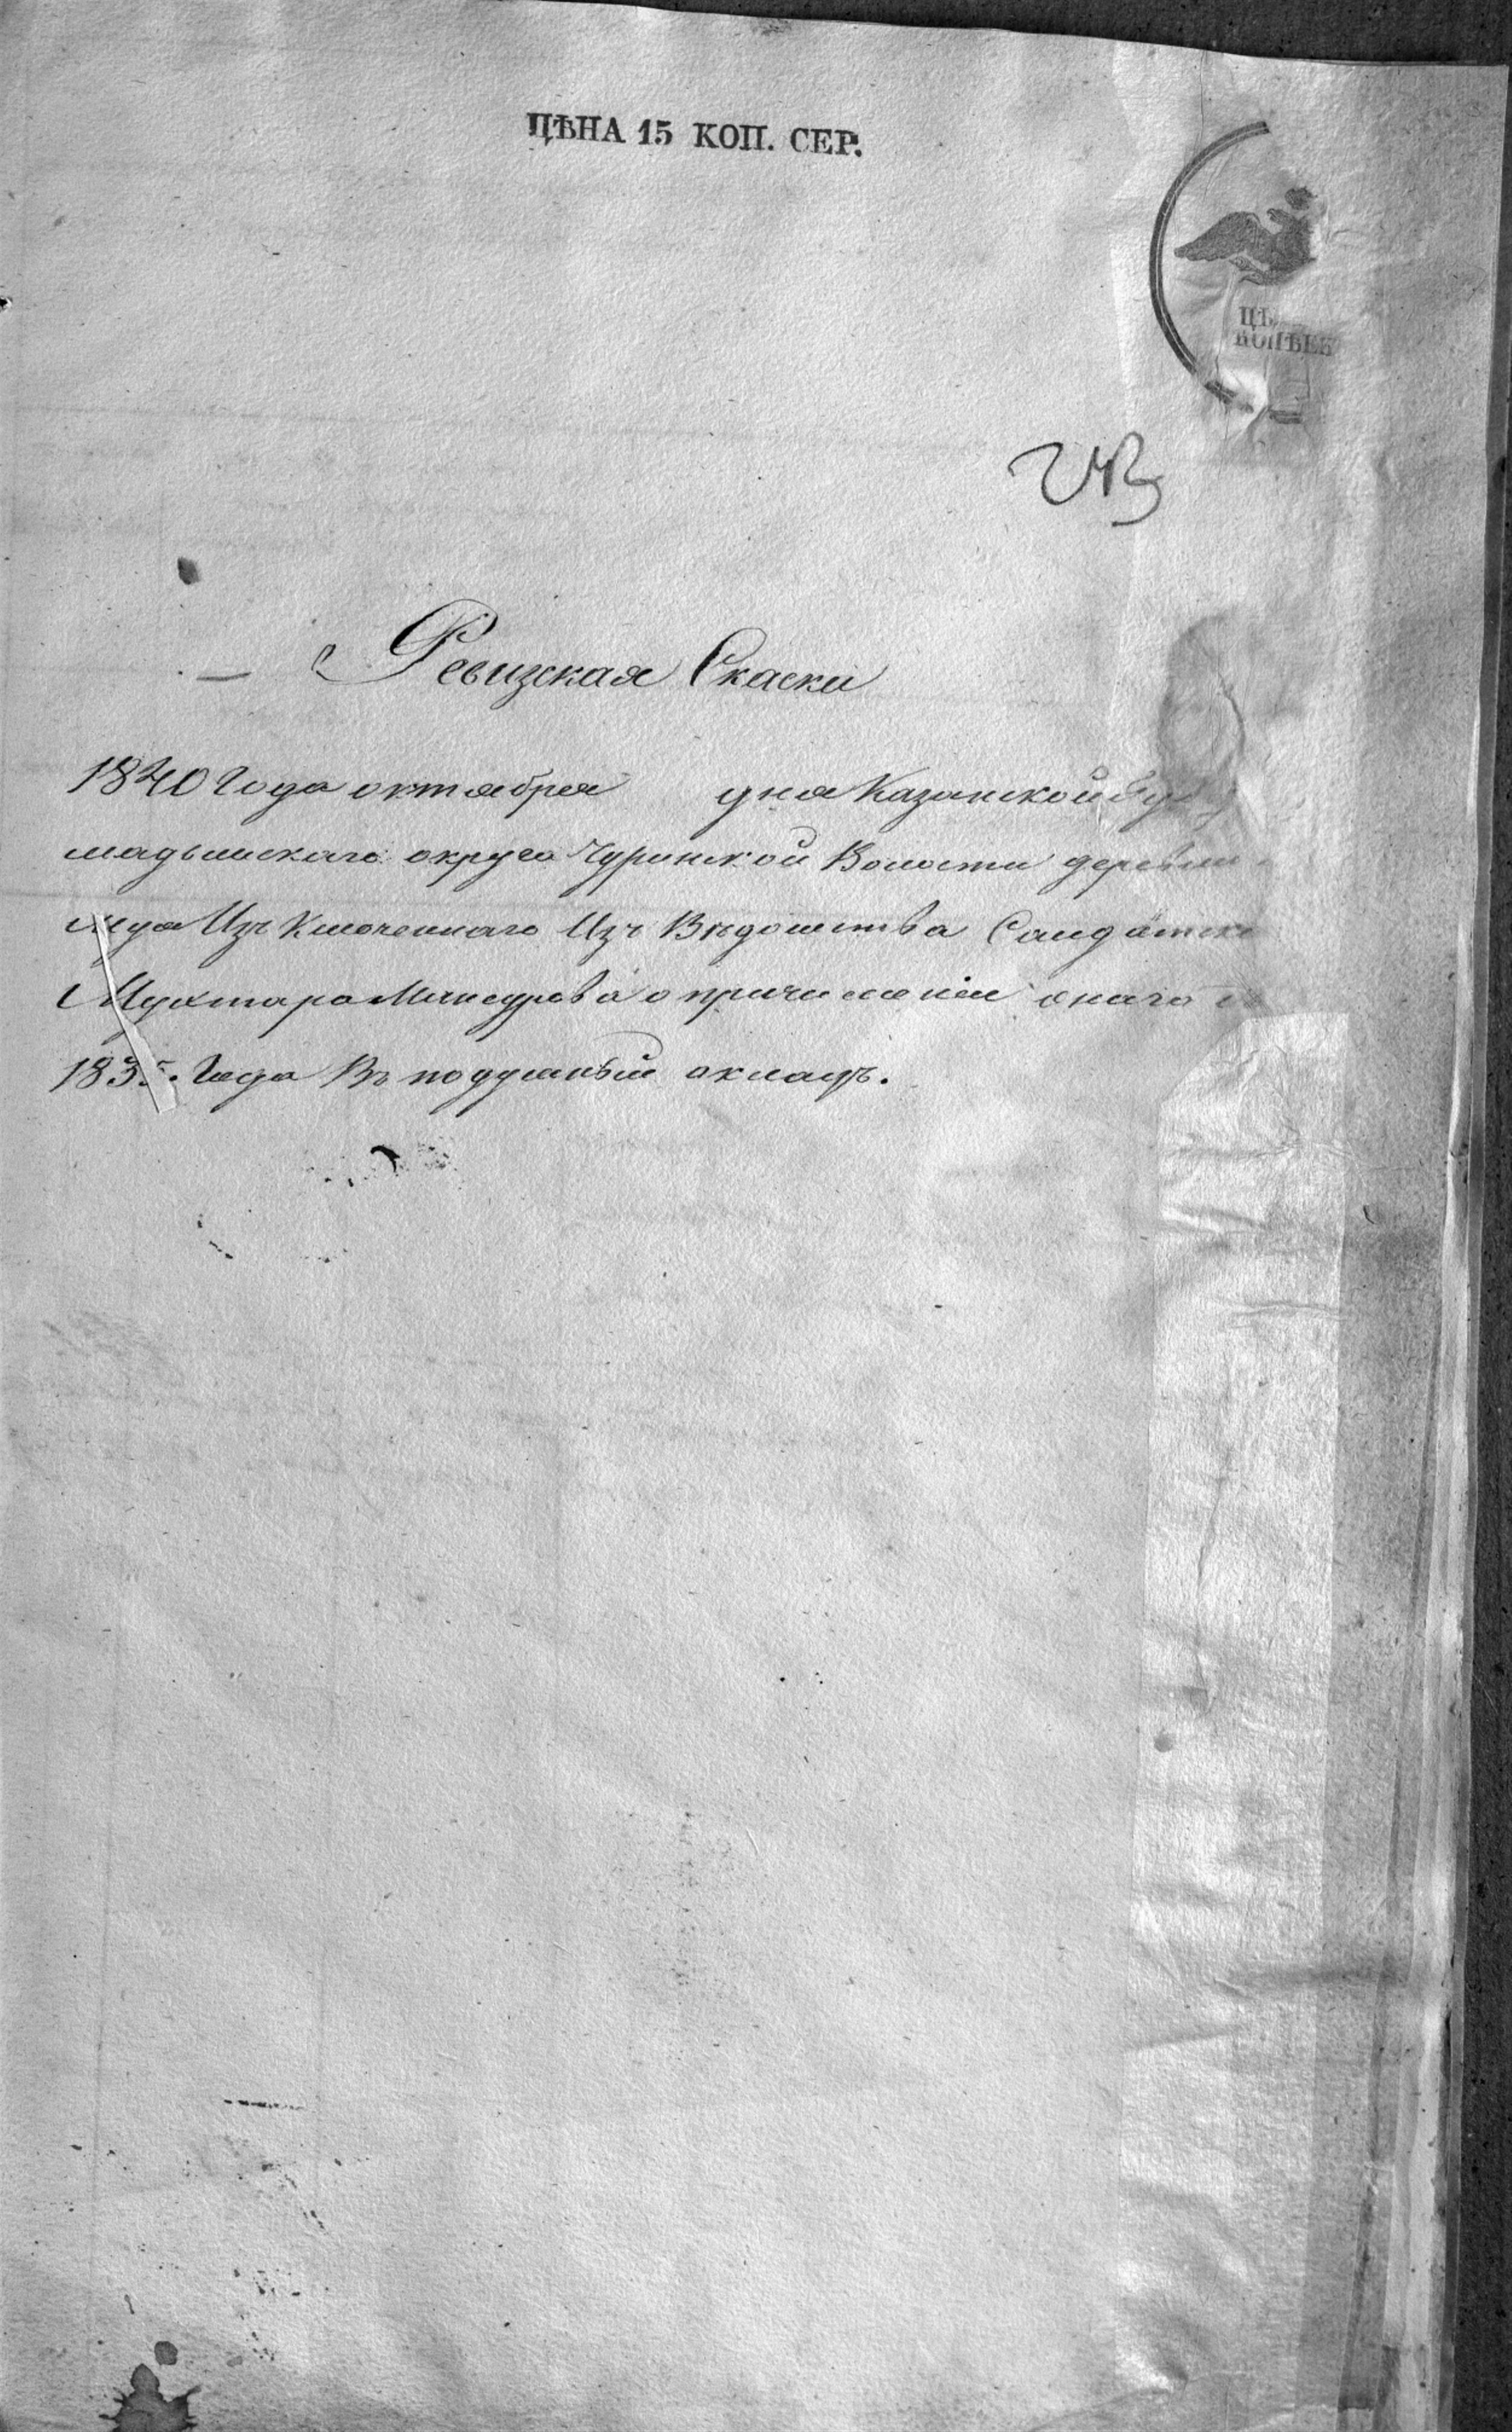 ЦѢНА 15 КОП. СЕР.
КОПѢЕК
Ревизская Скаски
1840 Года октября дня Казанской
мадышскаго округа Чуринской Волости деревни
Изъ Ключеннаго Изъ Вѣдомства Салдатска
Мухтара Мансурова о причислении онаго
1835. Года Въ подушный окладъ.